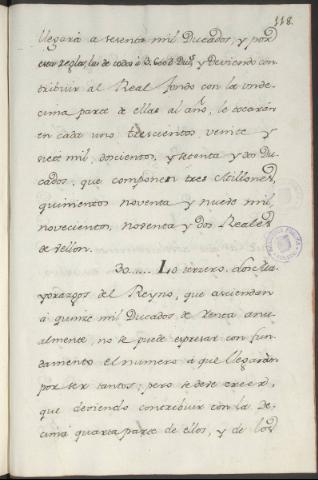 118.
llegará a sesenta mil Ducados, y por
esta regla, las de todos à 3.600 D Du.s, y deviendo con
tribuir al Real fondo con la unde-
cima parte de ellas al año, le tocarán
en cada uno trescientos, veinte y
siete mil, doscientos, y setenta y dos Du
cados, que componen tres Millones,
quinientos noventa y nueve mil
novecientos, noventa y dos Reales
de vellon.
30..... Lo tercero. Los Ma
yorazgos del Reyno, que asciendan
à quince mil Ducados de renta anu-
almente, no se puede expresar con fun-
damento el numero à que llegarán
por ser tantos; pero se deve creer,
que deviendo contribuir con la De-
cima quarta parte de ellos, y de los